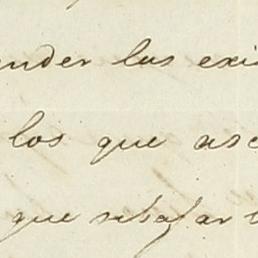 ender las exis
los que asc
que rebajar